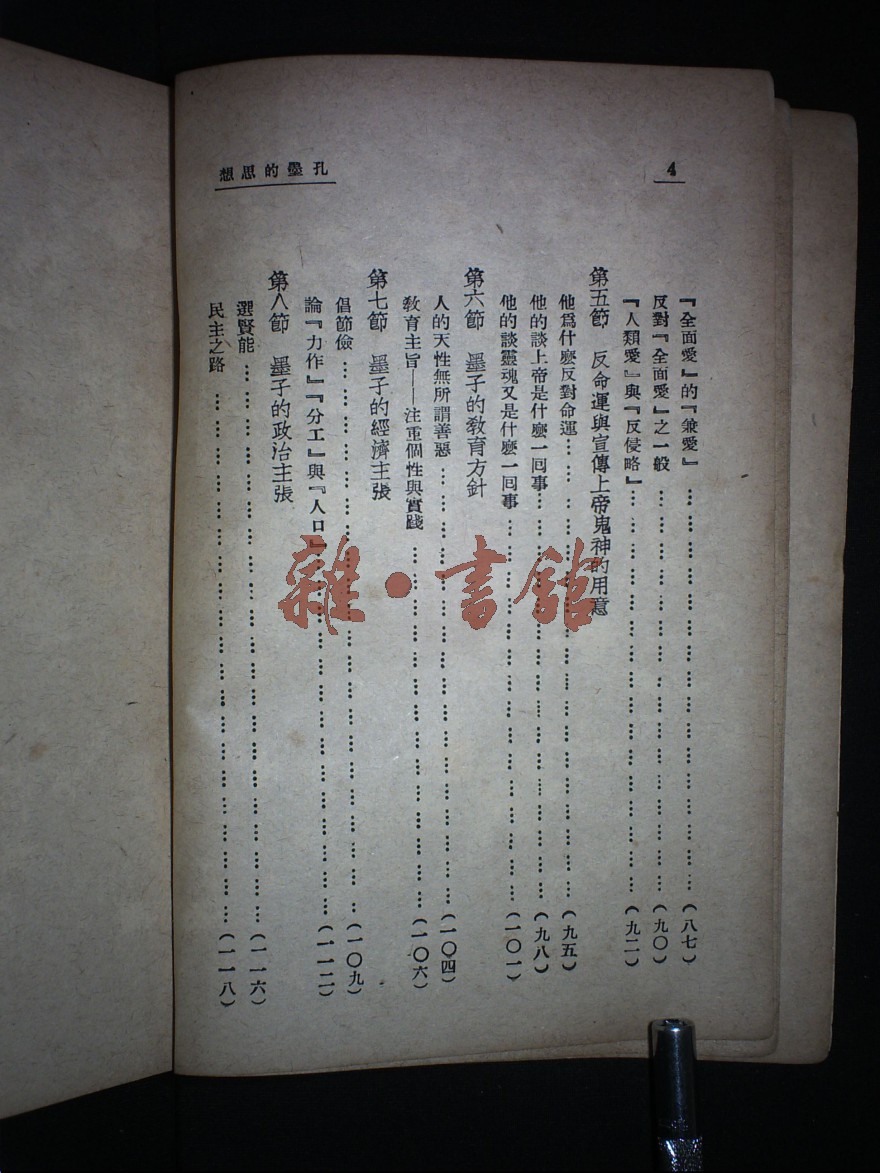 孔墨的思想
4
『全面愛』的『兼愛』……(八七)
反對『全面愛』之一般……(九〇)
『人類愛』與『反侵略』……(九二)
第五節 反命運與宣傳上帝鬼神的用意
他爲什麽反對命運……(九五)
他的談上帝是什麽一回事……(九八)
他的談靈魂又是什麽一回事……(一〇一)
第六節 墨子的教育方針
人的天性無所謂善惡……(一〇四)
教育主旨——注重個性與實踐……(一〇六)
第七節 墨子的經濟主張
倡節儉……(一〇九)
論『力作』『分工』與『人口』……(一一二)
第八節 墨子的政治主張
選賢能……(一一六)
民主之路……(一一八)
雜·書館